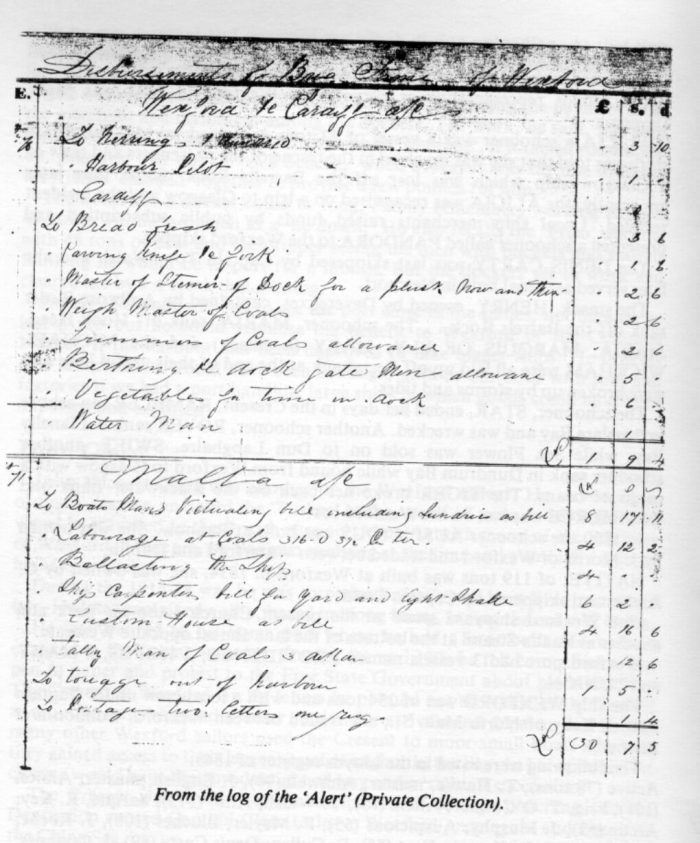 Disbursements of Brig of Wexford
E. Wexford to Cardiff a/c £ s. d
To Herrings 1 Hundred 3 10
Harbour Pilot 1 6
Cardiff
To Bread fresh 3 6
Carving Knife & fork 1 8
" Master of of Dock for a plank now and then 2 6
Weigh Master of Coals 2 6
" Trimmers of Coals allowance 2 6
" Berthing & dock gate Men allowance 5 "
" Vegetables for time in dock 6
Water Man 1
£ 9 4
Malta a/c
To Boats Mans Victualing bill including Sundries as bill 8 17 11
" Labourage at Coals 316 4 12 2
" Ballasting the Ship 4
" Ship Carpenter bill for yard and light 6 2 "
" Custom House as bill 4 16 6
" Tally Man of Coals 3 12 6
To towage out of harbour 1 5 "
To Postage two letters one 1 4
£ 30 7 5
From the log of the ‘Alert’ (Private Collection).